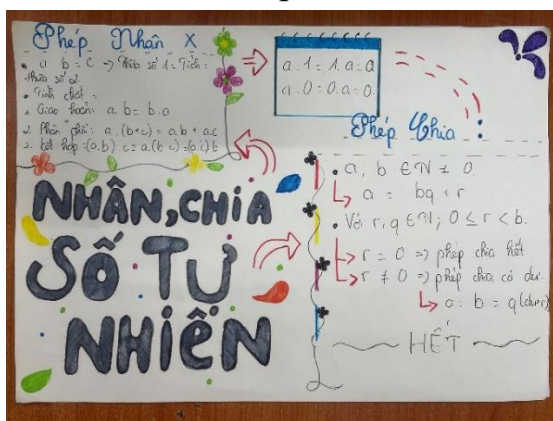 Phép Nhân X
• a b = c => Thừa số 1 = Tích :
thừa số 2.
• Tính chất =
1. Giao hoán: a. b = b. a
2. Phân phối: a. (b+c) = a.b + a.c
3. kết hợp: (a.b). c = a.(b.c) = (a.c) b
a. 1 = 1. a = a
a. 0 = 0. a = 0
NHÂN, CHIA
SỐ TỰ
NHIÊN
Phép Chia :
• a, b ∈ N ≠ 0.
a = bq + r
• Với r, q ∈ N; 0 ≤ r < b.
r = 0 => phép chia hết
r ≠ 0 => phép chia có dư.
a : b = q (dư r)
HẾT